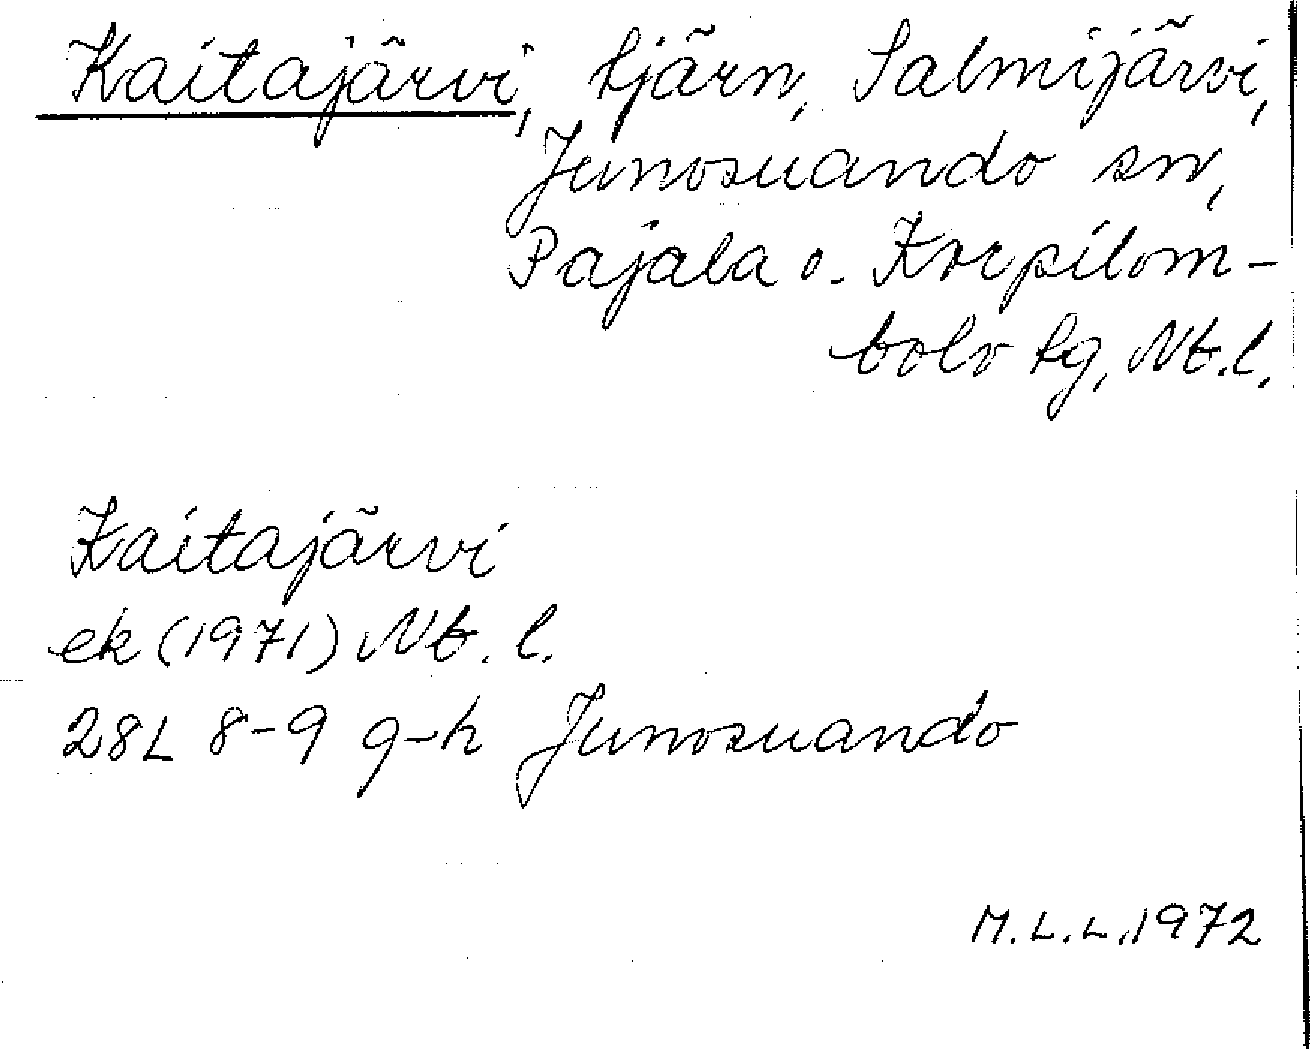 Kaitajärvi, tjärn, Salmijärvi,
Junosuando sn,
Pajala o. Korpilom-
bolo tg, Nb.l.
Kaitajärvi
ek (1971) Nb. l.
28L 8-9 g-h Junosuando
M.L.L. 1972